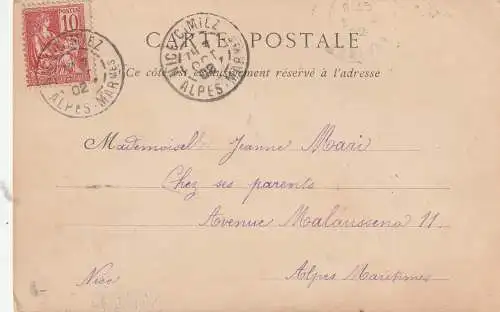 10 POSTES
NICE-CIMIEZ
02
ALPES-MARMES
NICE-CIMIEZ
OCT
02
ALPES-MARMES
CARTE POSTALE
Ce côté est exclusivement réservé à l'adresse
Mademoiselle Jeanne Mari
Chez ses parents
Avenue Malaussena 11
Nice Alpes Maritimes